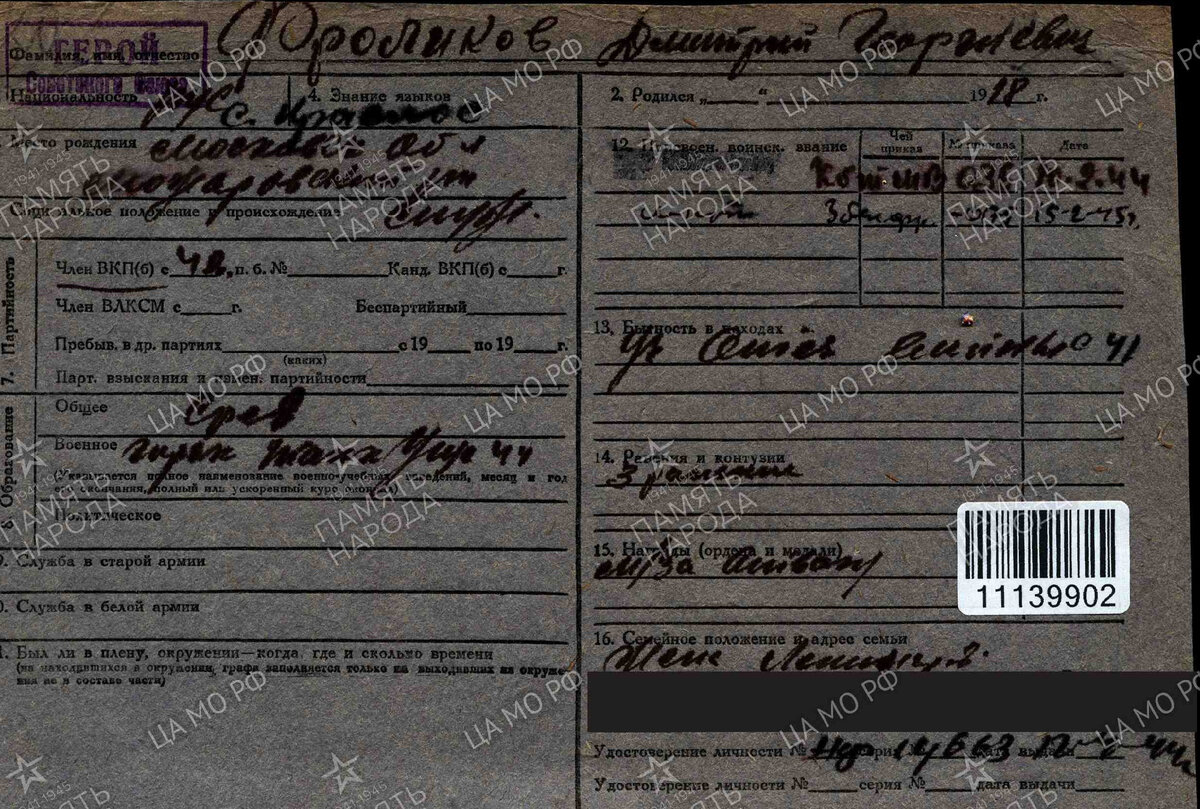 ГЕРОЙ
Советского Союза
Фроликов Дмитрий
Фамилия, имя, отчество
Национальность Рус
4. Знание языков
с.
Место рождения Московск Обл
Социальное положение и происхождение служ.
7. Партийность
Член ВКП(б) с 42 г. п. б. № Канд. ВКП(б) с г.
Член ВЛКСМ с г. Беспартийный
Пребыв. в др. партиях с 19 по 19 г.
(каких)
Парт. взыскания и измен. партийности
8. Образование
Общее сред
Военное горьк танк Учил 44
(Указывается полное наименование военно-учебных заведений, месяц и год
его окончания, полный или ускоренный курс окончил)
Политическое
9. Служба в старой армии
10. Служба в белой армии
11. Был ли в плену, окружении—когда, где и сколько времени
(на находившихся в окружении, графа заполняется только на выходивших из окруже-
ния не в составе части)
2. Родился „ “ 1918 г.
12. Присвоен. воинск. звание
Чей приказ
№ приказа
Дата
2.44
15-2-45г.
13. Бытность в походах
Уч Отеч войны с 41
14. Ранения и контузии
3 ранения
15. Награды (ордена и медали)
м/За отвагу
11139902
16. Семейное положение и адрес семьи
Жена
Удостоверение личности № серия № дата выдачи
Удостоверение личности № серия № дата выдачи
ЦА МО РФ
ПАМЯТЬ НАРОДА
1941-1945